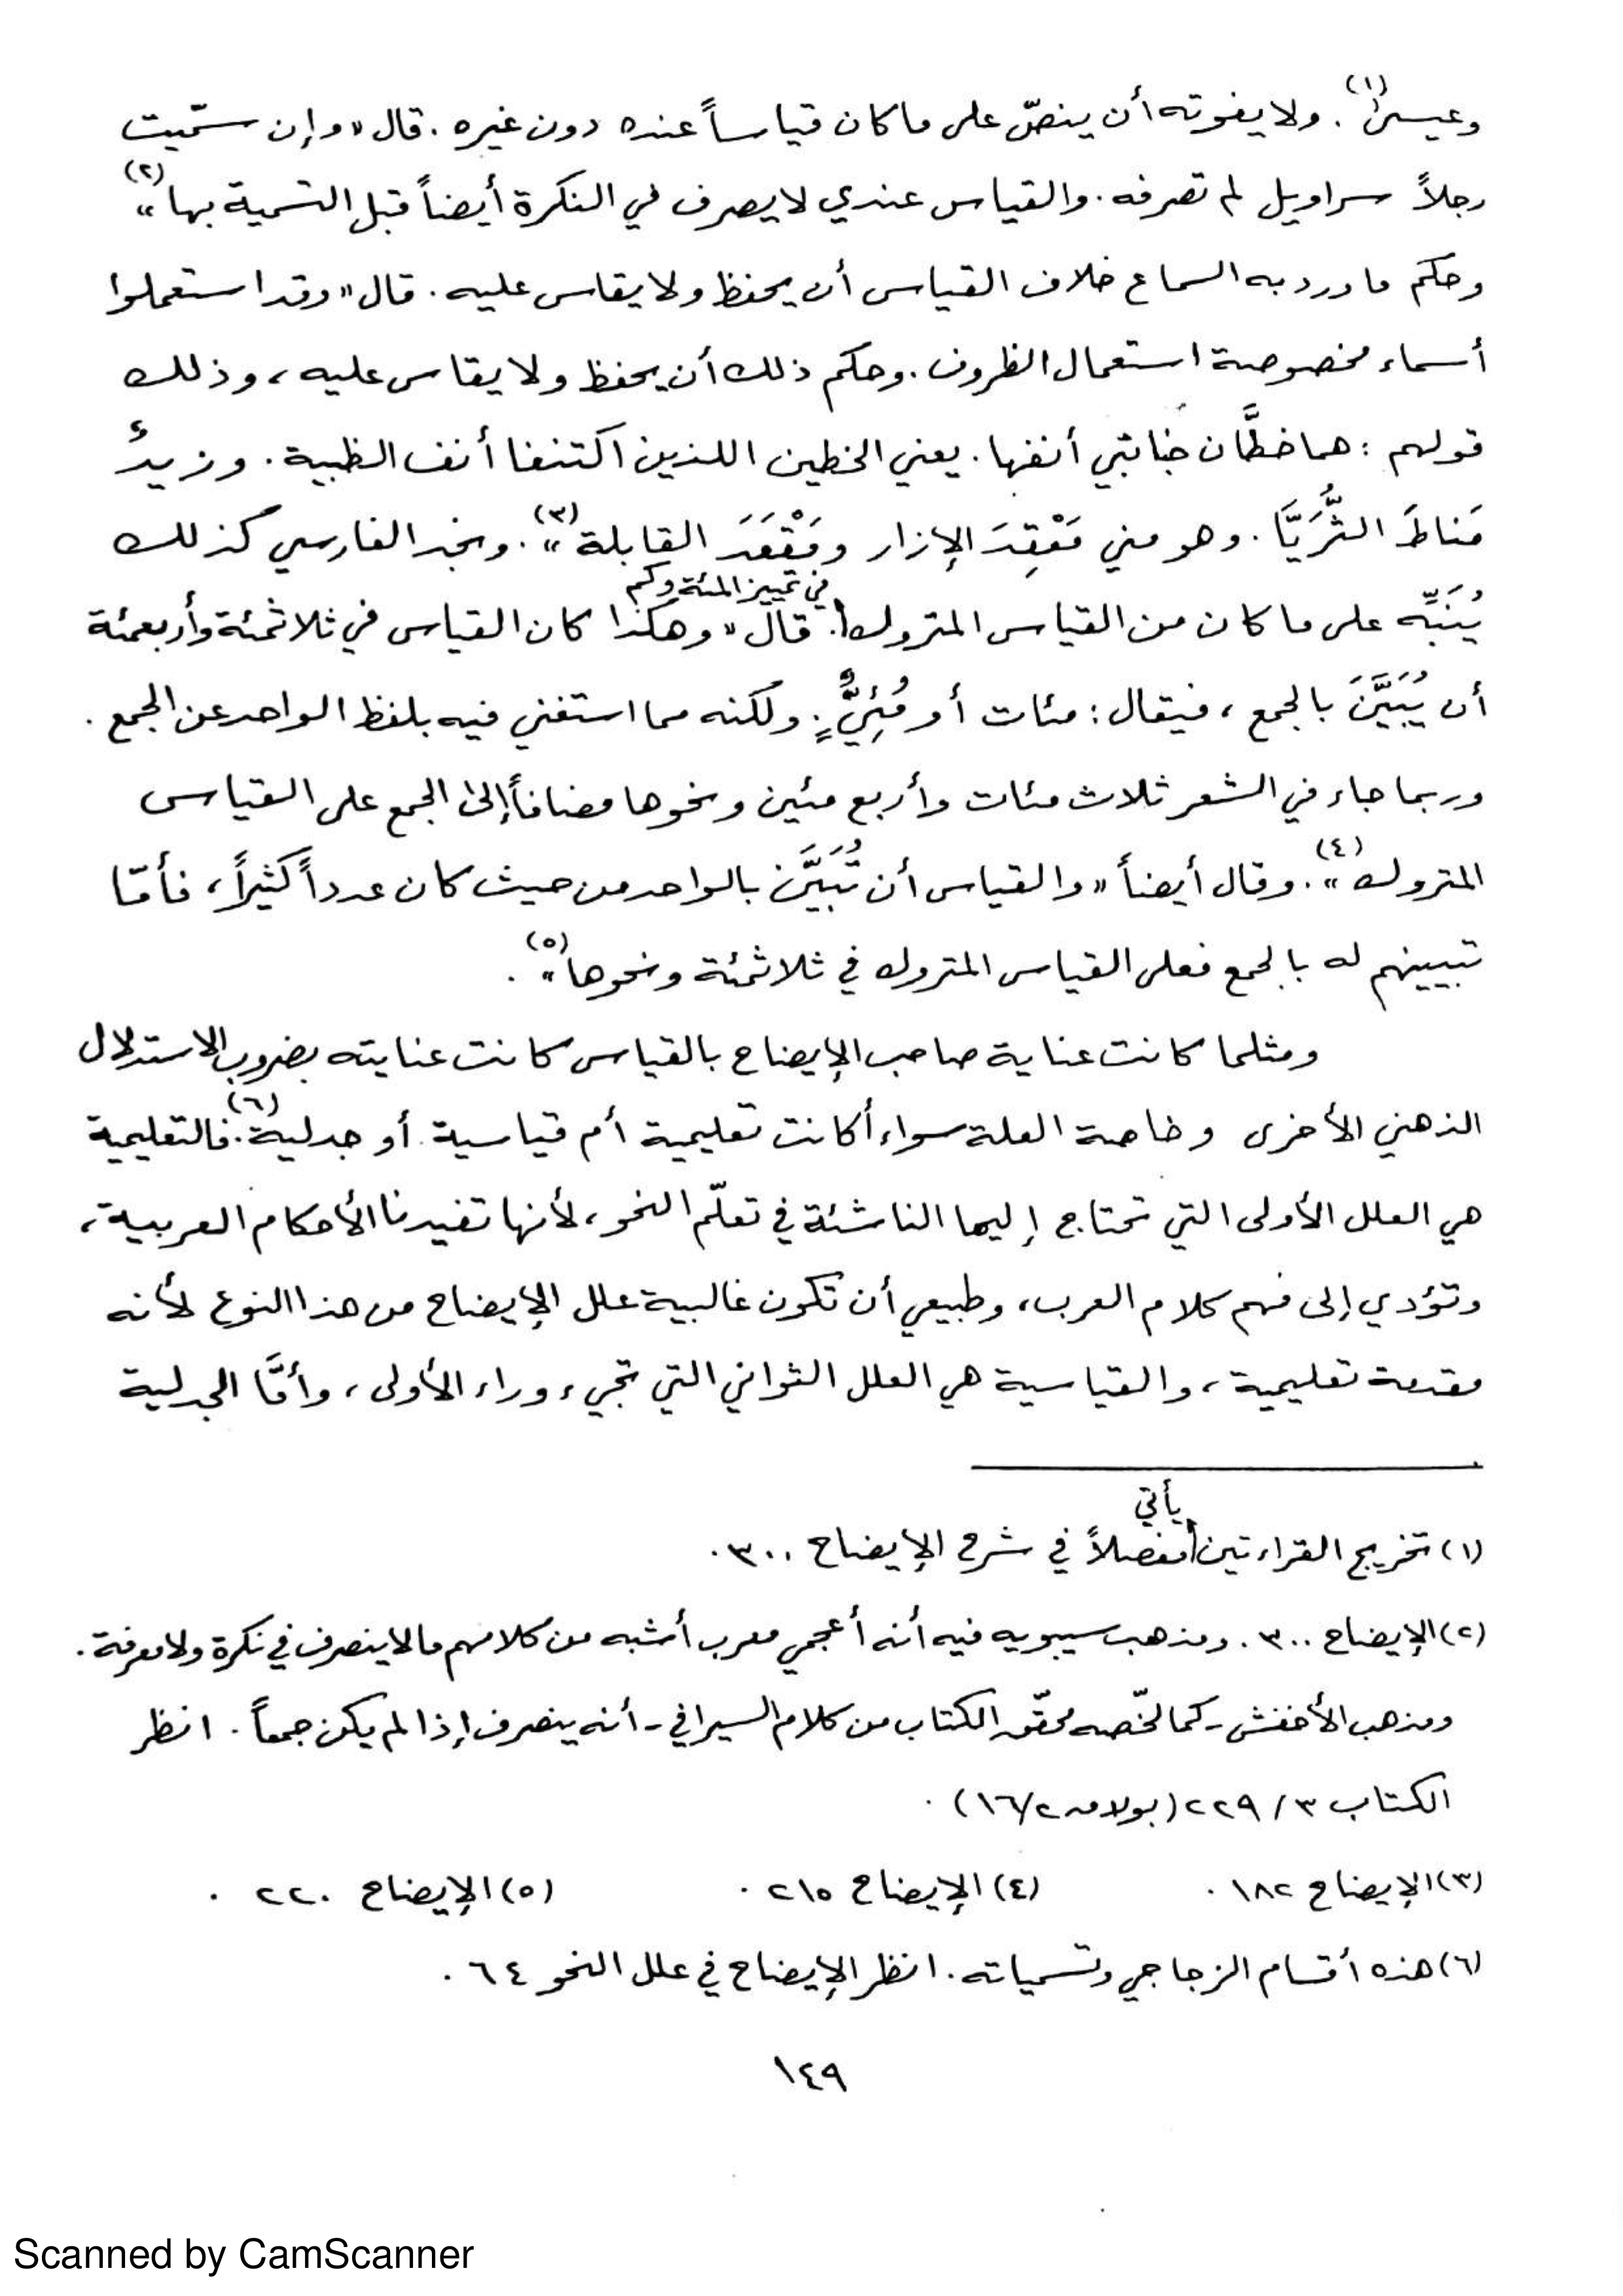 وعيسىٰ(١). ولا يفوته أن ينصّ على ما كان قياساً عنده دون غيره. قال «وإن سمّيت
رجلاً سراويل لم تصرفه. والقياس عندي لا يصرف في النكرة أيضاً قبل التسمية بها»(٢)
وحكم ما ورد به السماع خلاف القياس أن يحفظ ولا يقاس عليه. قال «وقد استعملوا
أسماء مخصوصة استعمال الظروف. وحكم ذلك أن يحفظ ولا يقاس عليه، وذلك
قولهم: هما خطَّان جنابتي أنفها. يعني الخطين اللذين اكتنفا أنف الظبية. وزيدٌ
مَناطَ الثُّرَيَّا. وهو مني مَعْقِدَ الإزار ومَقْعَدَ القابلة»(٣). ونجد الفارسي كذلك
يُنَبِّه على ما كان من القياس المتروك في تمييز المئة وكم. قال «وهكذا كان القياس في ثلاثمئة وأربعمئة
أن يُبَيَّنَ بالجمع، فيقال: مئات أو مُئِيٌّ. ولكنه مما استغني فيه بلفظ الواحد عن الجمع.
وربما جاء في الشعر ثلاث مئات وأربع مئين ونحوها مضافاً إلى الجمع على القياس
المتروك»(٤). وقال أيضاً «والقياس أن تُبَيَّنَ بالواحد من حيث كان عدداً كثيراً، فأمّا
تبيينهم له بالجمع فعلى القياس المتروك في ثلاثمئة ونحوها»(٥).
ومثلما كانت عناية صاحب الإيضاح بالقياس كانت عنايته بضروب الاستدلال
الذهني الأخرى وخاصة العلة سواء أكانت تعليمية أم قياسية أو جدلية(٦). فالتعليمية
هي العلل الأولى التي تحتاج إليها الناشئة في تعلّم النحو، لأنها تفيدنا الأحكام العربية،
وتؤدي إلى فهم كلام العرب، وطبيعي أن تكون غالبية علل الإيضاح من هذا النوع لأنه
مقدمة تعليمية، والقياسية هي العلل الثواني التي تجيء وراء الأولى، وأمَّا الجدلية
(١) تخريج القراءتين يأتي مفصلاً في شرح الإيضاح ٣٠٠.
(٢) الإيضاح ٣٠٠. ومذهب سيبويه فيه أنه أعجمي معرب أشبه من كلامهم ما لا ينصرف في نكرة ولا معرفة.
ومذهب الأخفش - كما لخّصه محقّق الكتاب من كلام السيرافي - أنه ينصرف إذا لم يكن جمعاً. انظر
الكتاب ٣/ ٢٢٩ (بولاق ٢/ ١٦).
(٣) الإيضاح ١٨٢. (٤) الإيضاح ٢١٥. (٥) الإيضاح ٢٢٠.
(٦) هذه أقسام الزجاجي وتسمياته. انظر الإيضاح في علل النحو ٦٤.
١٤٩
Scanned by CamScanner